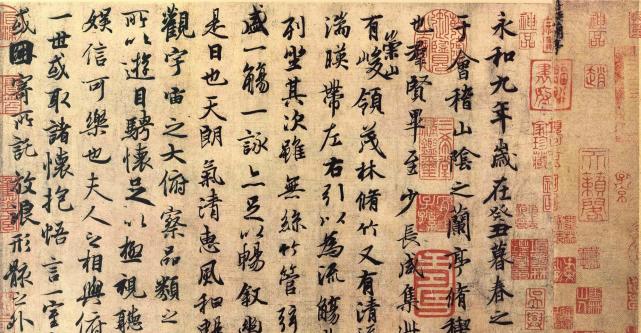 神品
天籟閣
永和九年歲在癸丑暮春之
于會稽山陰之蘭亭脩稧
也羣賢畢至少長咸集此
有崇山峻領茂林脩竹又有清流
湍暎帶左右引以為流觴
列坐其次雖無絲竹管弦
盛一觴一詠亦足以暢叙幽
是日也天朗氣清惠風和暢
觀宇宙之大俯察品類之
所以遊目騁懷足以極視聽
娛信可樂也夫人之相與俯
一世或取諸懷抱悟言一室
或因寄所託放浪形骸之外